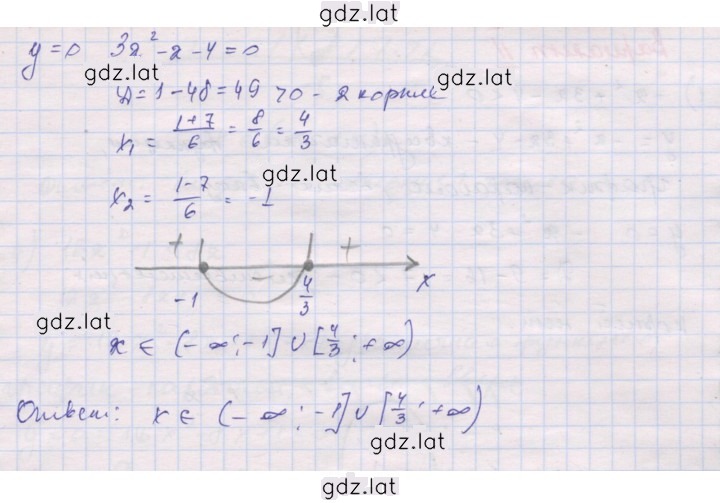 gdz.lat
y=0 3x² - x - 4 = 0
gdz.lat
Д = 1 - 48 = 49 > 0 - 2 корня
gdz.lat
x₁ = (1+7)/6 = 8/6 = 4/3
gdz.lat
x₂ = (1-7)/6 = -1
+ - + x
-1 4/3
gdz.lat
x ∈ (-∞; -1] ∪ [4/3; +∞)
gdz.lat
Ответ: x ∈ (-∞; -1] ∪ [4/3; +∞)
gdz.lat
gdz.lat